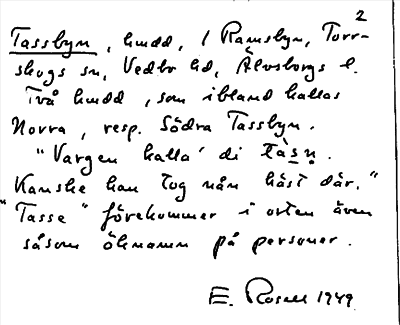 2
Tassbyn, hmdd, i Ramsbyn, Torr-
skogs sn, Vedbo hd, Älvsborgs l.
Två hmdd, som ibland kallas
Norra, resp. Södra Tassbyn.
"Vargen kalla' di tàsn̥.
Kanske han tog nån häst där."
"Tasse" förekommer i orten även
såsom öknamn på personer.
E. Rosell 1949